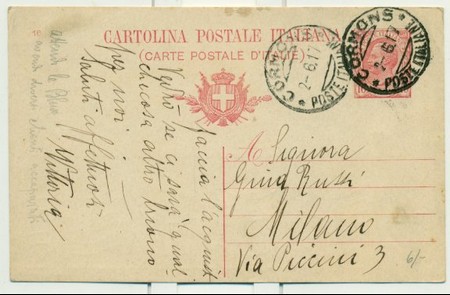 CARTOLINA POSTALE ITALIANA
(CARTE POSTALE D'ITALIE)
CORMONS
2.6.17
* POSTE ITALIANE *
CORMONS
2.6.17
* POSTE ITALIANE *
A Signora
Gina Russi
Milano
Via Puccini 3
6/-
faccia l'acquisto
Vedrò se ci sarà qual
che cosa altro buono
per noi
saluti affettuosi
Vittoria